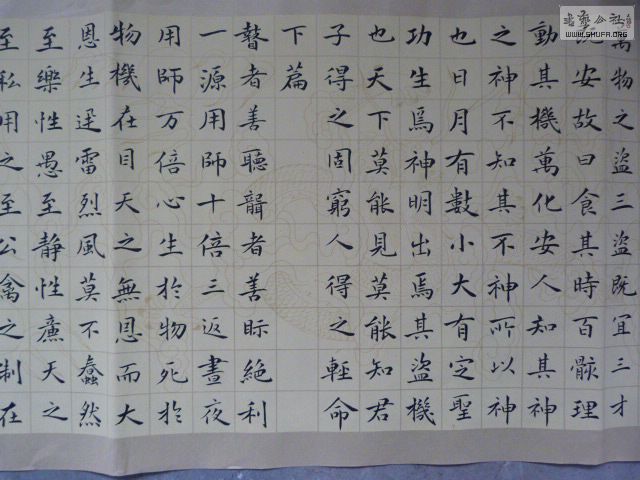 书艺公社
WWW.SHUFA.ORG
萬物之盜三盜既宜三才
既安故曰食其時百骸理
動其機萬化安人知其神
之神不知其不神所以神
也日月有數小大有定聖
功生焉神明出焉其盜機
也天下莫能見莫能知君
子得之固窮人得之輕命
下篇
瞽者善聽聾者善眎絕利
一源用師十倍三返晝夜
用師万倍心生於物死於
物機在目天之無恩而大
恩生迅雷烈風莫不蠢然
至樂性愚至靜性廉天之
至私用之至公禽之制在